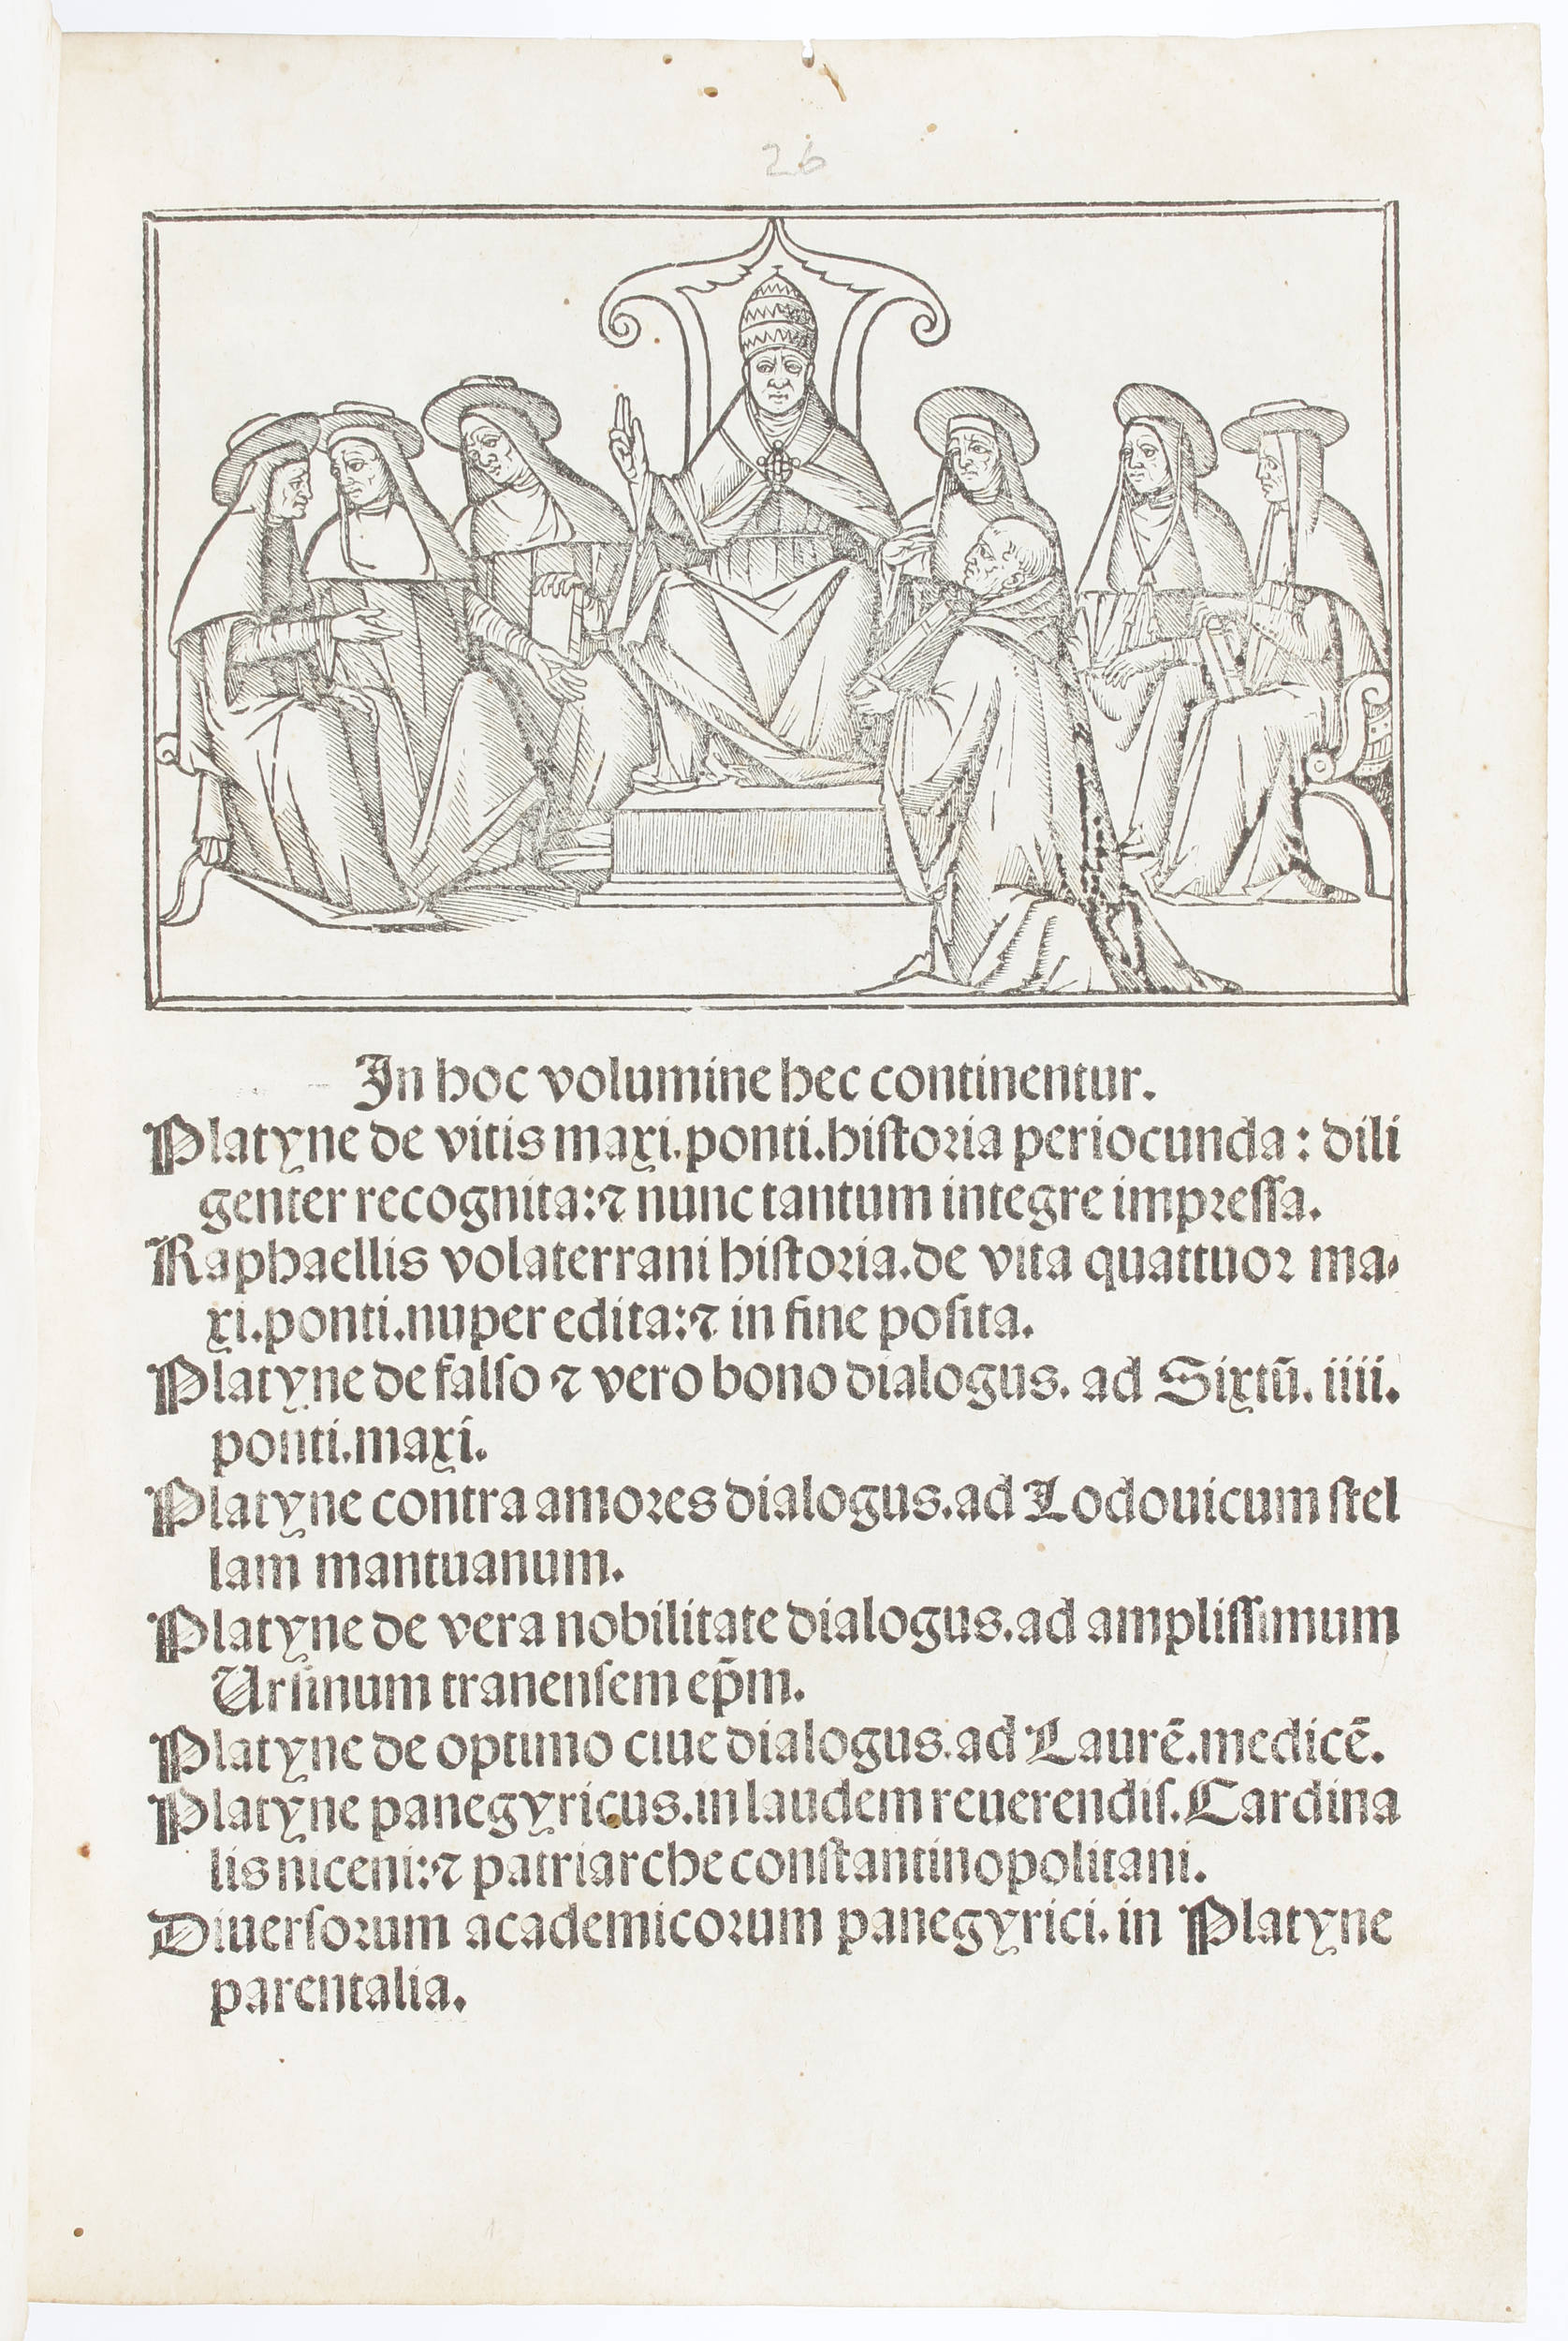 26
In hoc volumine hec continentur.
Platyne de vitis maxi.ponti.historia periocunda : dili
genter recognita:⁊ nunc tantum integre impressa.
Raphaellis volaterrani historia.de vita quattuor ma-
xi.ponti.nuper edita:⁊ in fine posita.
Platyne de falso ⁊ vero bono dialogus. ad Sixtū. iiii.
ponti.maxi.
Platyne contra amores dialogus.ad Lodouicum stel
lam mantuanum.
Platyne de vera nobilitate dialogus.ad amplissimum
Ursinum tranensem ep̄m.
Platyne de optimo ciue dialogus.ad Laurē.medicē.
Platyne panegyricus.in laudem reuerendis.Cardina
lis niceni:⁊ patriarche constantinopolitani.
Diuersorum academicorum panegyrici.in Platyne
parentalia.